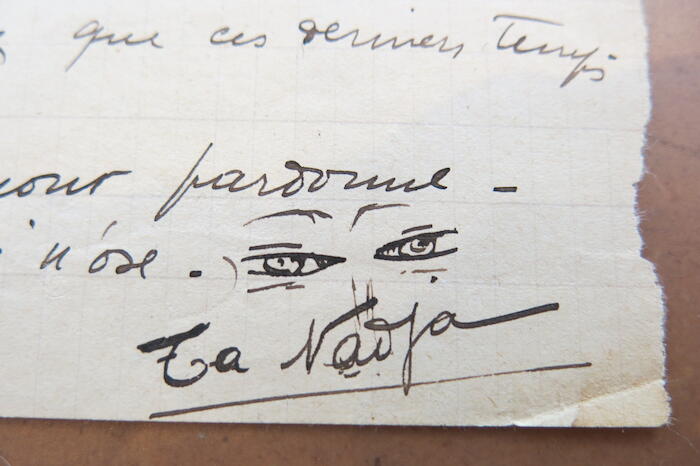 que ces derniers temps
pardonne -
n'ose .
Ta Nadja